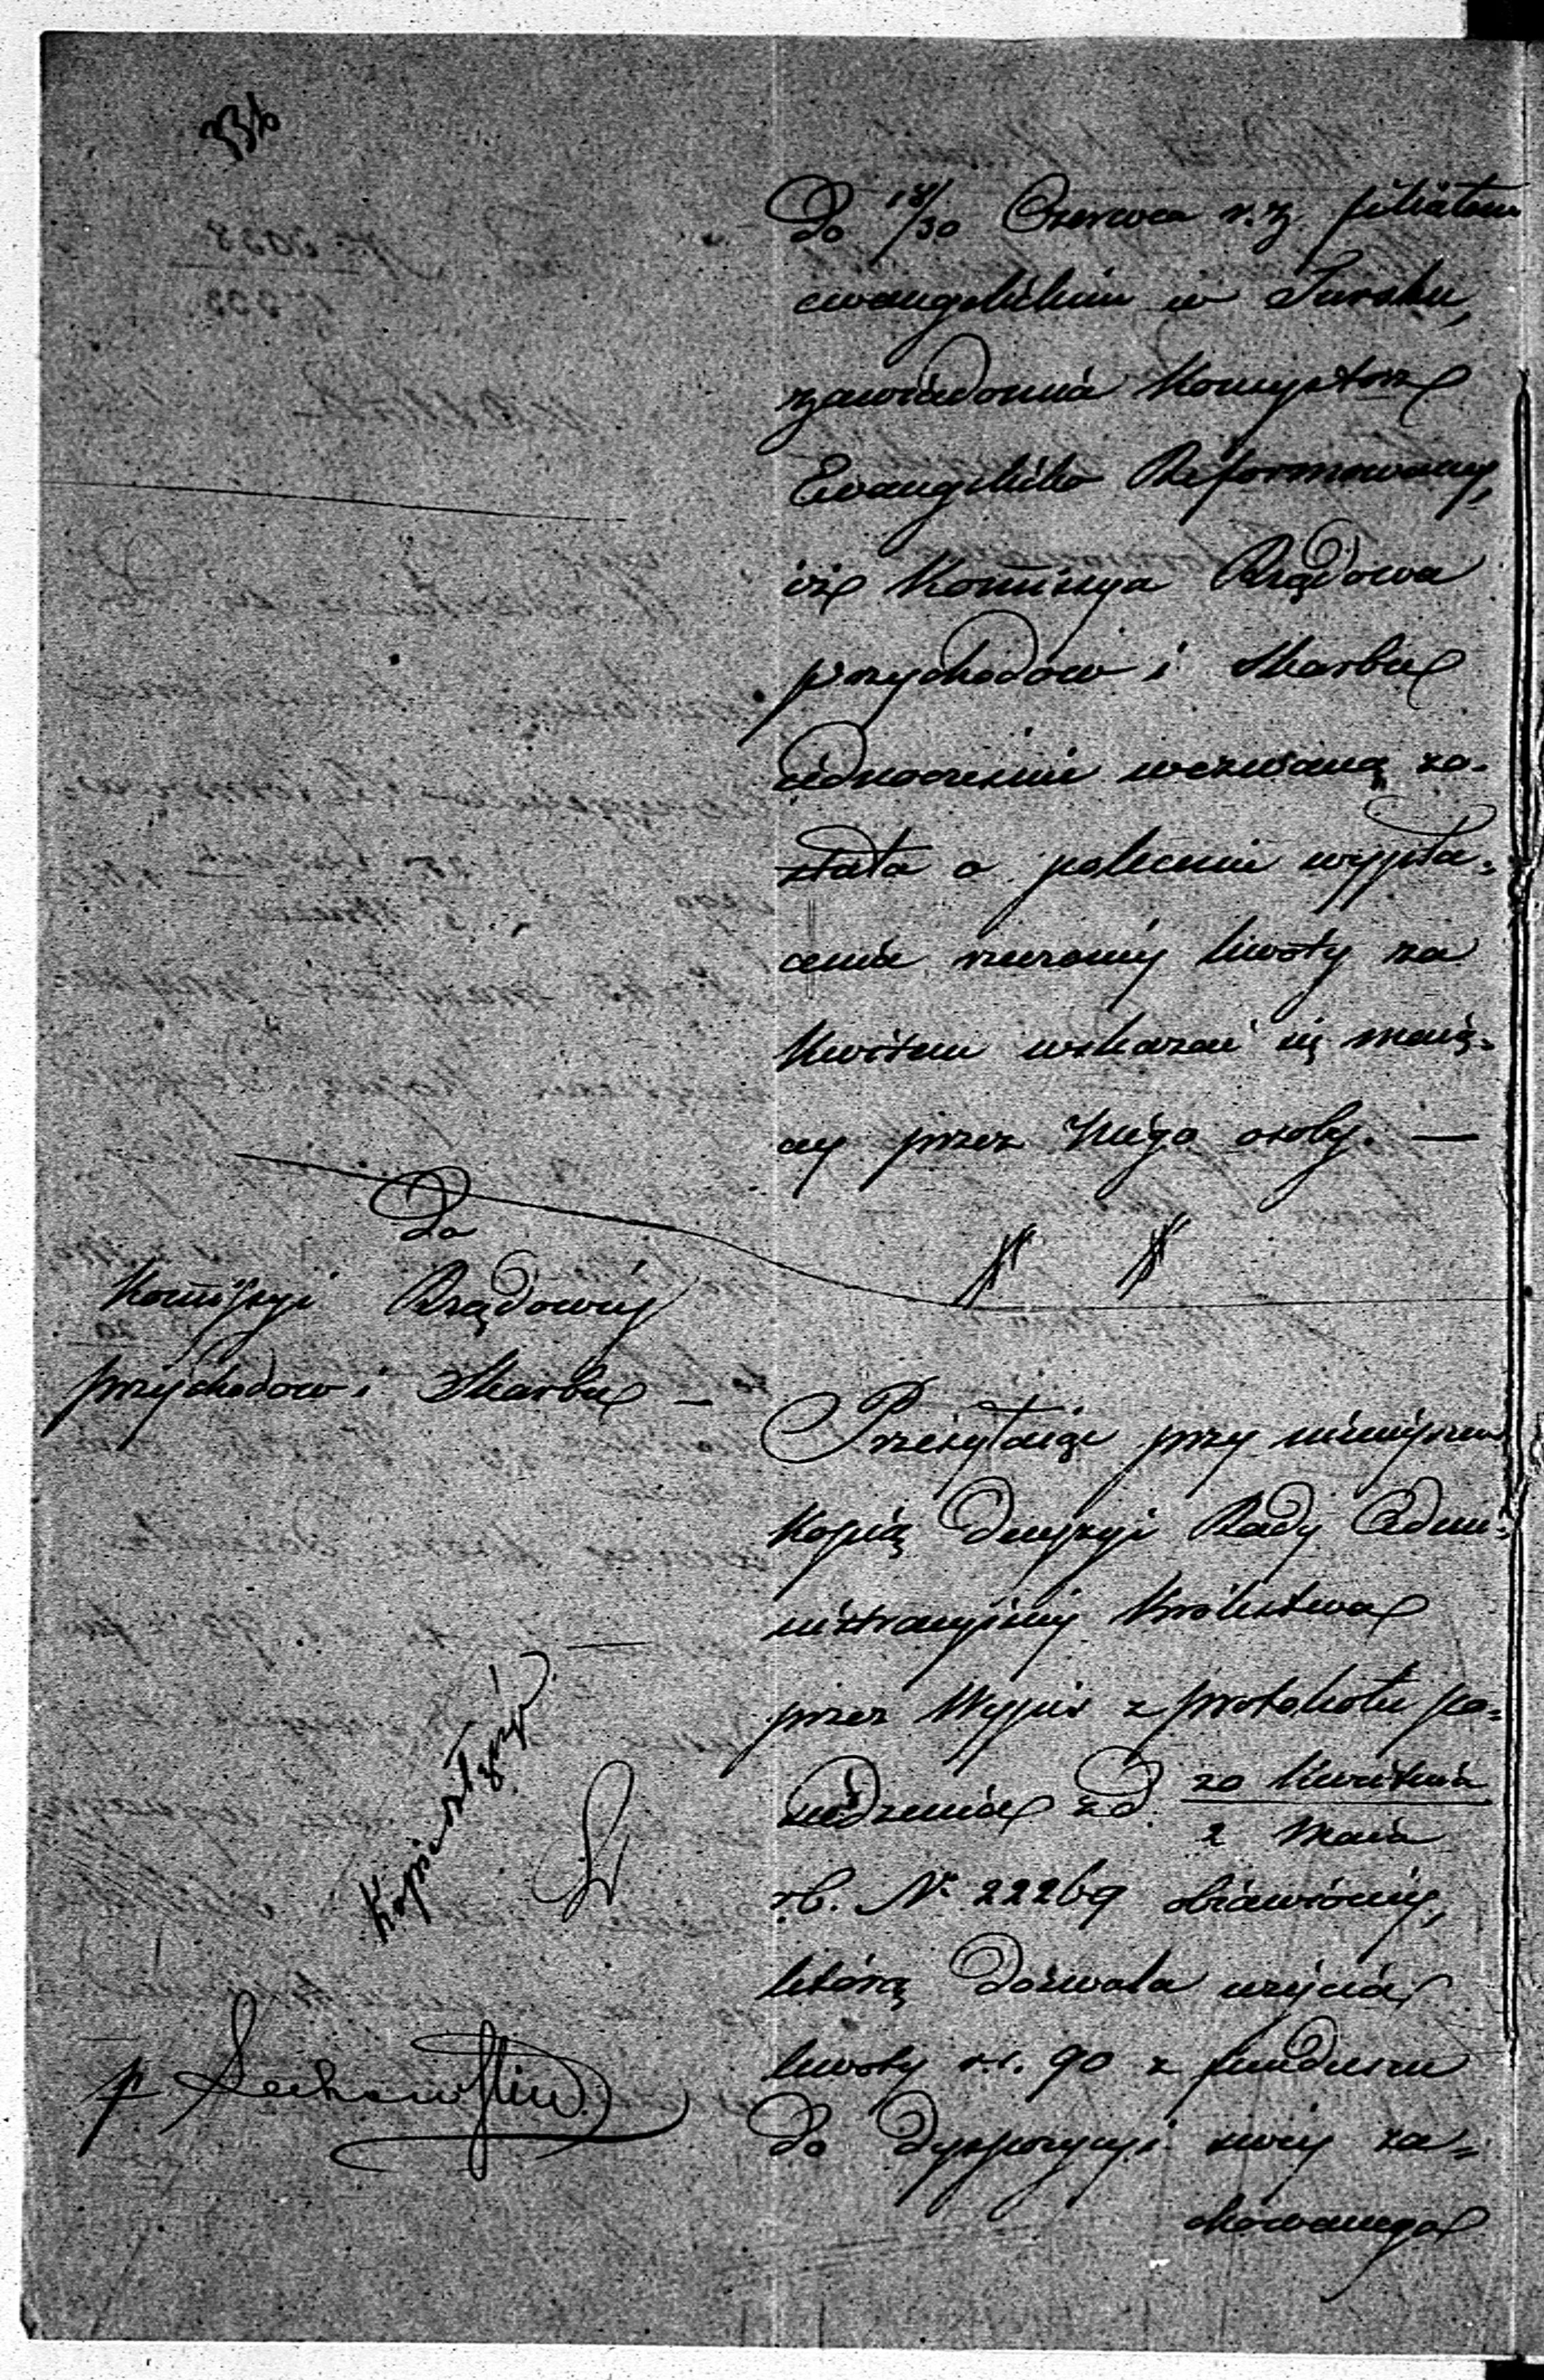 336
Do 18/30 Czerwca r. z. filiałem
ewangelickim w Turoku,
zawiadomia Konsystorz
Ewangelicko Reformowany,
iż Kommissya Rządowa
przychodow i Skarbu
iednocześnie wezwaną zo-
stała o polecenie wypła-
cenia rzeczoney kwoty za
kwitem wskazać się maią-
cey przez Niego osoby. —
Do
Kommissyi Rządowéy
przychodow i Skarbu —
Przesyłaiąc przy ninieyszem
kopią decyzyi Rady Admi-
nistracyjnéy Królestwa
przez Wypis z protokołu po-
siedzenia z d. 20 kwietnia
2 Maia
r. b. N° 22269 obiawionéy,
którą dozwala użycia
kwoty rs. 90 z funduszu
do dyspozycyi swéy za-
chowanego